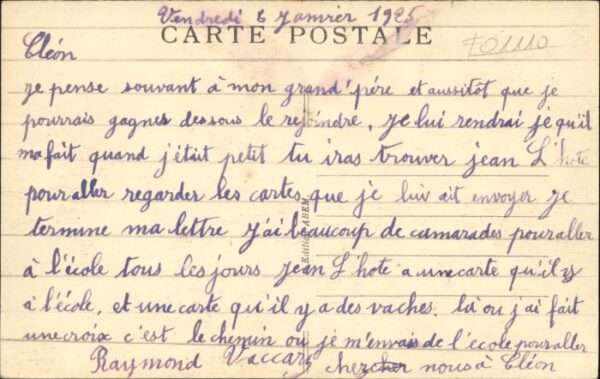 Vendredi 6 Janvier 1925
CARTE POSTALE
Cléon
je pense souvant à mon grand'père et aussitôt que je
pourrais gagnes des sous le rejoindre, je lui rendrai je qu'il
ma fait quand j'était petit tu iras trouver jean L'hote
pour aller regarder les cartes que je luiv ait envoyer je
termine ma lettre j'ai beaucoup de camarades pour aller
à l'école tous les jours jean L'hote a une carte qu'il y
à l'école, et une carte qu'il y a des vaches. là ou j'ai fait
une croix c'est le chemin ou je m'envais de l'école pour aller
Raymond Vaccary chercher nous à Cléon